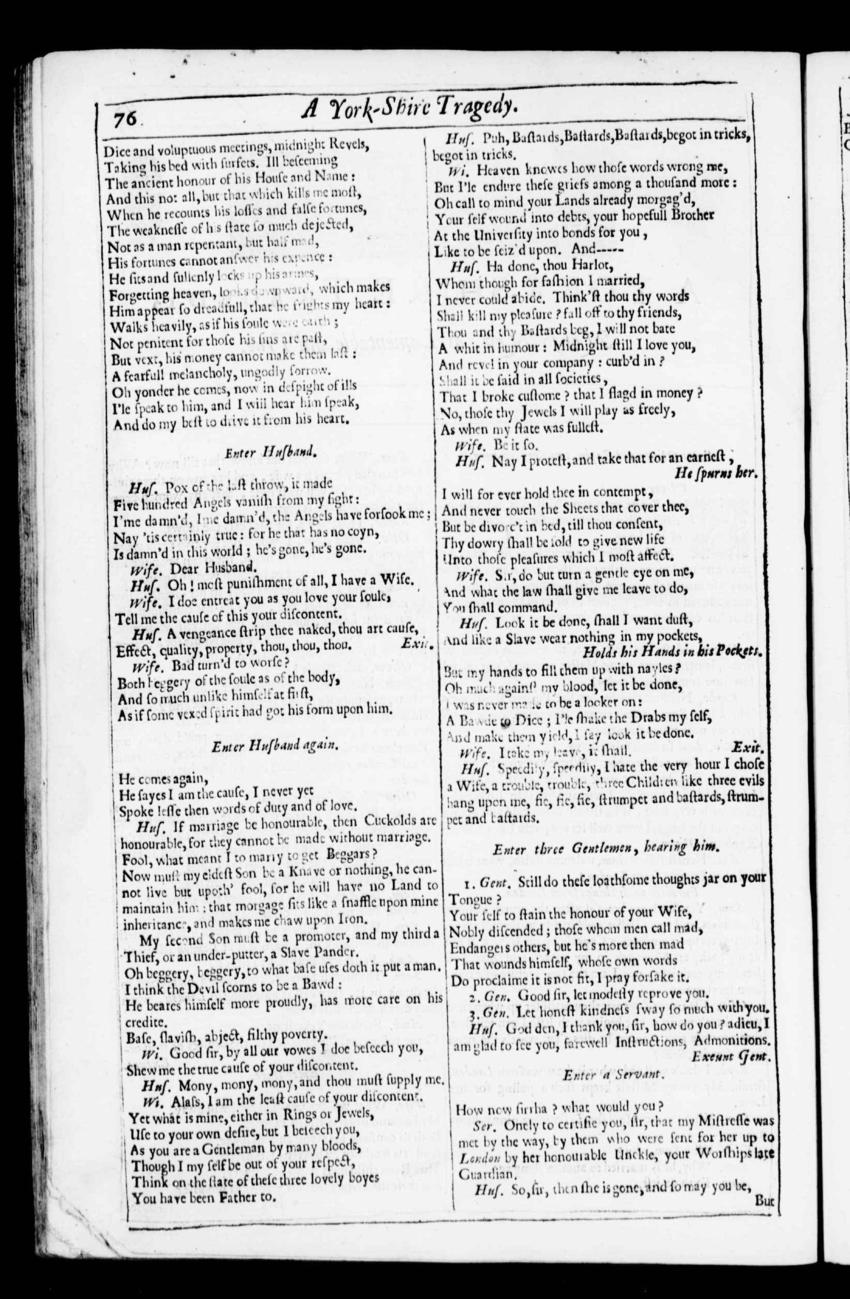 76
A York-Shire Tragedy.
Dice and voluptuous meetings, midnight Revels,
Taking his bed with ſurfets. Ill beſeeming
The ancient honour of his Houſe and Name:
And this not all, but that which kills me moſt,
When he recounts his loſſes and falſe fortunes,
The weakneſſe of his ſtate ſo much dejected,
Not as a man repentant, but half mad,
His fortunes cannot anſwer his expence:
He ſits and ſullenly locks up his armes,
Forgetting heaven, looks downward, which makes
Him appear ſo dreadfull, that he frights my heart:
Walks heavily, as if his ſoule were earth;
Not penitent for thoſe his ſins are paſt,
But vext, his money cannot make them laſt:
A fearfull melancholy, ungodly ſorrow.
Oh yonder he comes, now in deſpight of ills
I'le ſpeak to him, and I will hear him ſpeak,
And do my beſt to drive it from his heart.
Enter Huſband.
Huſ. Pox of the laſt throw, it made
Five hundred Angels vaniſh from my ſight:
I'me damn'd, I'me damn'd, the Angels have forſook me;
Nay 'tis certainly true: for he that has no coyn,
Is damn'd in this world; he's gone, he's gone.
Wife. Dear Husband.
Huſ. Oh! moſt puniſhment of all, I have a Wife.
Wife. I doe entreat you as you love your ſoule,
Tell me the cauſe of this your diſcontent.
Huſ. A vengeance ſtrip thee naked, thou art cauſe,
Effect, quality, property, thou, thou, thou. Exit.
Wife. Bad turn'd to worſe?
Both beggery of the ſoule as of the body,
And ſo much unlike himſelf at firſt,
As if ſome vexed ſpirit had got his form upon him.
Enter Huſband again.
He comes again,
He ſayes I am the cauſe, I never yet
Spoke leſſe then words of duty and of love.
Huſ. If marriage be honourable, then Cuckolds are
honourable, for they cannot be made without marriage.
Fool, what meant I to marry to get Beggars?
Now muſt my eldeſt Son be a Knave or nothing, he can-
not live but upoth' fool, for he will have no Land to
maintain him: that morgage ſits like a ſnaffle upon mine
inheritance, and makes me chaw upon Iron.
My ſecond Son muſt be a promoter, and my third a
Thief, or an under-putter, a Slave Pander.
Oh beggery, beggery, to what baſe uſes doth it put a man.
I think the Devil ſcorns to be a Bawd:
He beares himſelf more proudly, has more care on his
credite.
Baſe, ſlaviſh, abject, filthy poverty.
Wi. Good ſir, by all our vowes I doe beſeech you,
Shew me the true cauſe of your diſcontent.
Huſ. Mony, mony, mony, and thou muſt ſupply me.
Wi. Alaſs, I am the leaſt cauſe of your diſcontent.
Yet what is mine, either in Rings or Jewels,
Uſe to your own deſire, but I beſeech you,
As you are a Gentleman by many bloods,
Though I my ſelf be out of your reſpect,
Think on the ſtate of theſe three lovely boyes
You have been Father to.
Huſ. Puh, Baſtards, Baſtards, Baſtards, begot in tricks,
begot in tricks.
Wi. Heaven knowes how thoſe words wrong me,
But I'le endure theſe griefs among a thouſand more:
Oh call to mind your Lands already morgag'd,
Your ſelf wound into debts, your hopefull Brother
At the Univerſity into bonds for you,
Like to be ſeiz'd upon. And-----
Huſ. Ha done, thou Harlot,
Whom though for faſhion I married,
I never could abide. Think'ſt thou thy words
Shall kill my pleaſure? fall off to thy friends,
Thou and thy Baſtards beg, I will not bate
A whit in humour: Midnight ſtill I love you,
And revel in your company: curb'd in?
Shall it be ſaid in all ſocieties,
That I broke cuſtome? that I flagd in money?
No, thoſe thy Jewels I will play as freely,
As when my ſtate was fulleſt.
Wife. Be it ſo.
Huſ. Nay I proteſt, and take that for an earneſt,
He ſpurns her.
I will for ever hold thee in contempt,
And never touch the Sheets that cover thee,
But be divorc't in bed, till thou conſent,
Thy dowry ſhall be ſold to give new life
Unto thoſe pleaſures which I moſt affect.
Wife. Sir, do but turn a gentle eye on me,
And what the law ſhall give me leave to do,
You ſhall command.
Huſ. Look it be done, ſhall I want duſt,
And like a Slave wear nothing in my pockets,
Holds his Hands in his Pockets.
But my hands to fill them up with nayles?
Oh much againſt my blood, let it be done,
I was never made to be a looker on:
A Bawde to Dice; I'le ſhake the Drabs my ſelf,
And make them yield, I ſay look it be done.
Wife. I take my leave, it ſhall. Exit.
Huſ. Speedily, ſpeedily, I hate the very hour I choſe
a Wife, a trouble, trouble, three Children like three evils
hang upon me, fie, fie, fie, ſtrumpet and baſtards, ſtrum-
pet and baſtards.
Enter three Gentlemen, hearing him.
1. Gent. Still do theſe loathſome thoughts jar on your
Tongue?
Your ſelf to ſtain the honour of your Wife,
Nobly diſcended; thoſe whom men call mad,
Endangers others, but he's more then mad
That wounds himſelf, whoſe own words
Do proclaime it is not fit, I pray forſake it.
2. Gen. Good ſir, let modeſty reprove you.
3. Gen. Let honeſt kindneſs ſway ſo much with you.
Huſ. God den, I thank you, ſir, how do you? adieu, I
am glad to ſee you, farewell Inſtructions, Admonitions.
Exeunt Gent.
Enter a Servant.
How now ſirrha? what would you?
Ser. Onely to certifie you, ſir, that my Miſtreſſe was
met by the way, by them who were ſent for her up to
London by her honourable Unckle, your Worſhips late
Guardian.
Huſ. So, ſir, then ſhe is gone, and ſo may you be,
But